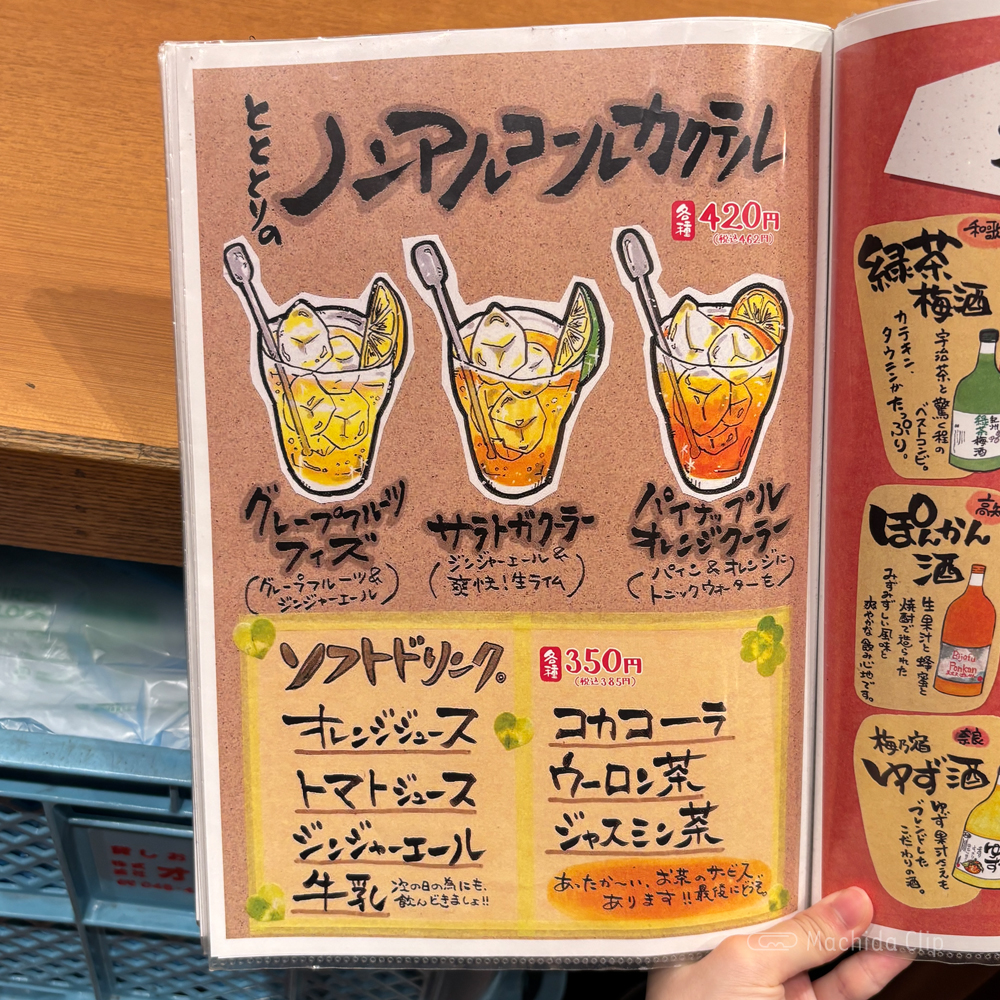 とととりの
ノンアルコールカクテル
各種 420円
(税込462円)
グレープフルーツ
フィズ
(グレープフルーツ&
ジンジャーエール)
サラトガクーラー
(ジンジャーエール&
爽快!生ライム)
パイナップル
オレンジクーラー
(パイン&オレンジに
トニックウォーターを)
ソフトドリンク。
各種 350円
(税込385円)
オレンジジュース
トマトジュース
ジンジャーエール
牛乳 次の日の為にも、
飲んどきましょ!!
コカコーラ
ウーロン茶
ジャスミン茶
あったか〜い、お茶のサービス
あります!!最後にどうぞ。
和歌
緑茶
梅酒
宇治茶と驚く程の
ベストコンビ。
カテキン、
タウニンがたっぷり。
緑茶梅酒
高知
ぽんかん
酒
生果汁と蜂蜜と
焼酎で造られた
みずみずしい風味と
爽やかな飲み心地です。
Ponkan
奈良
梅乃宿
ゆず酒
ゆず果汁
ブレンドした
こだわりの酒。
ゆず
貸しお
Machida Clip